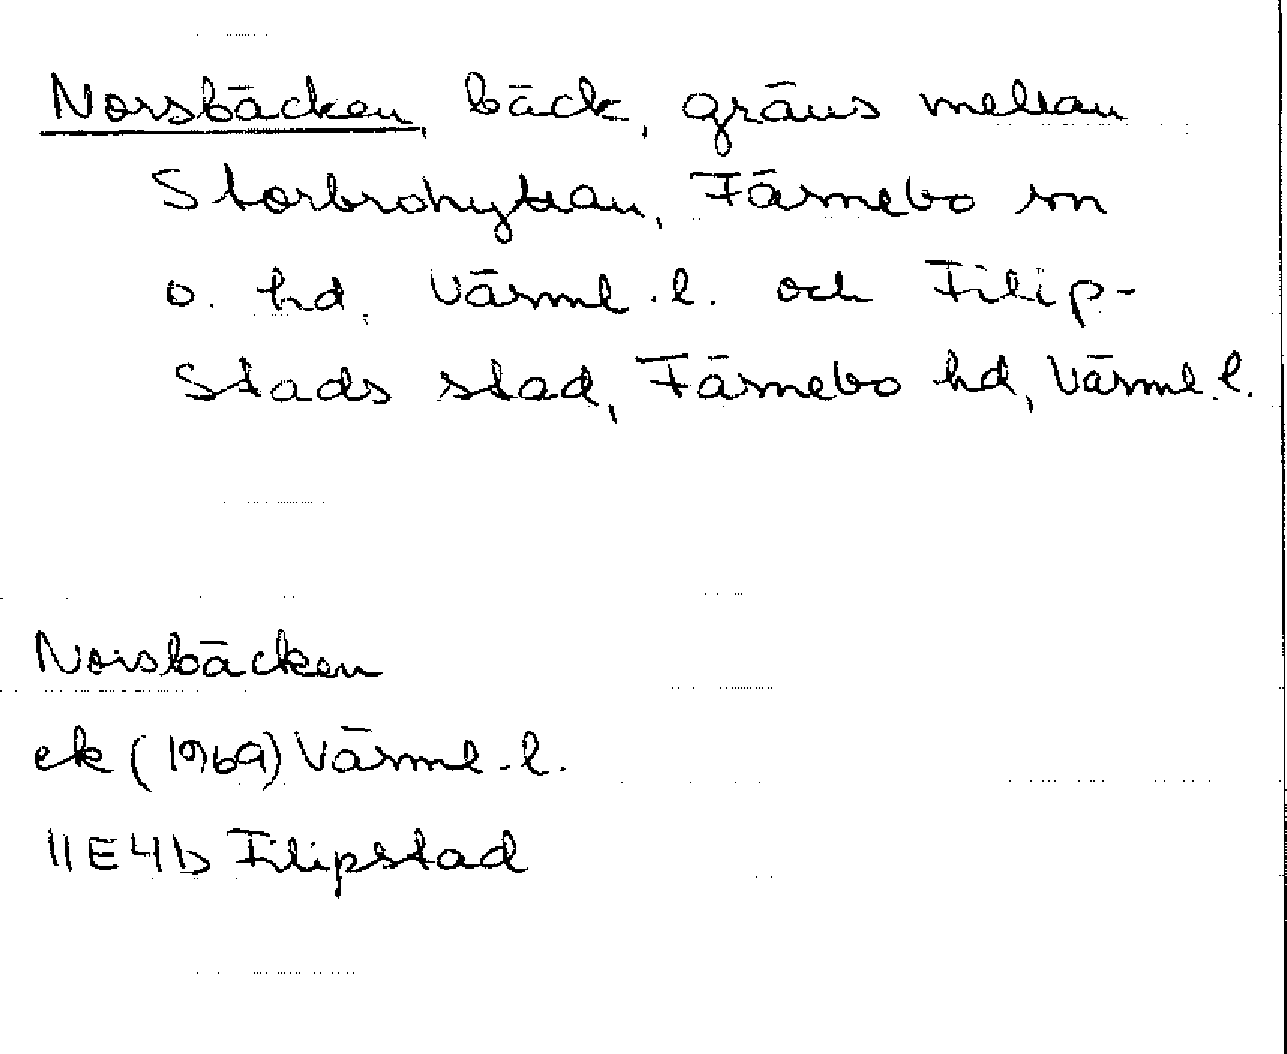 Norsbäcken, bäck, gräns mellan
Storbrohyttan, Färnebo sn
o. hd, Värml. l. och Filip-
stads stad, Färnebo hd, Värml. l.
Norsbäcken
ek (1969) Värml. l.
11E4b Filipstad